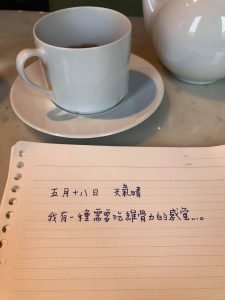 五月十八日 天氣晴
我有一種需要吃維骨力的感覺...。